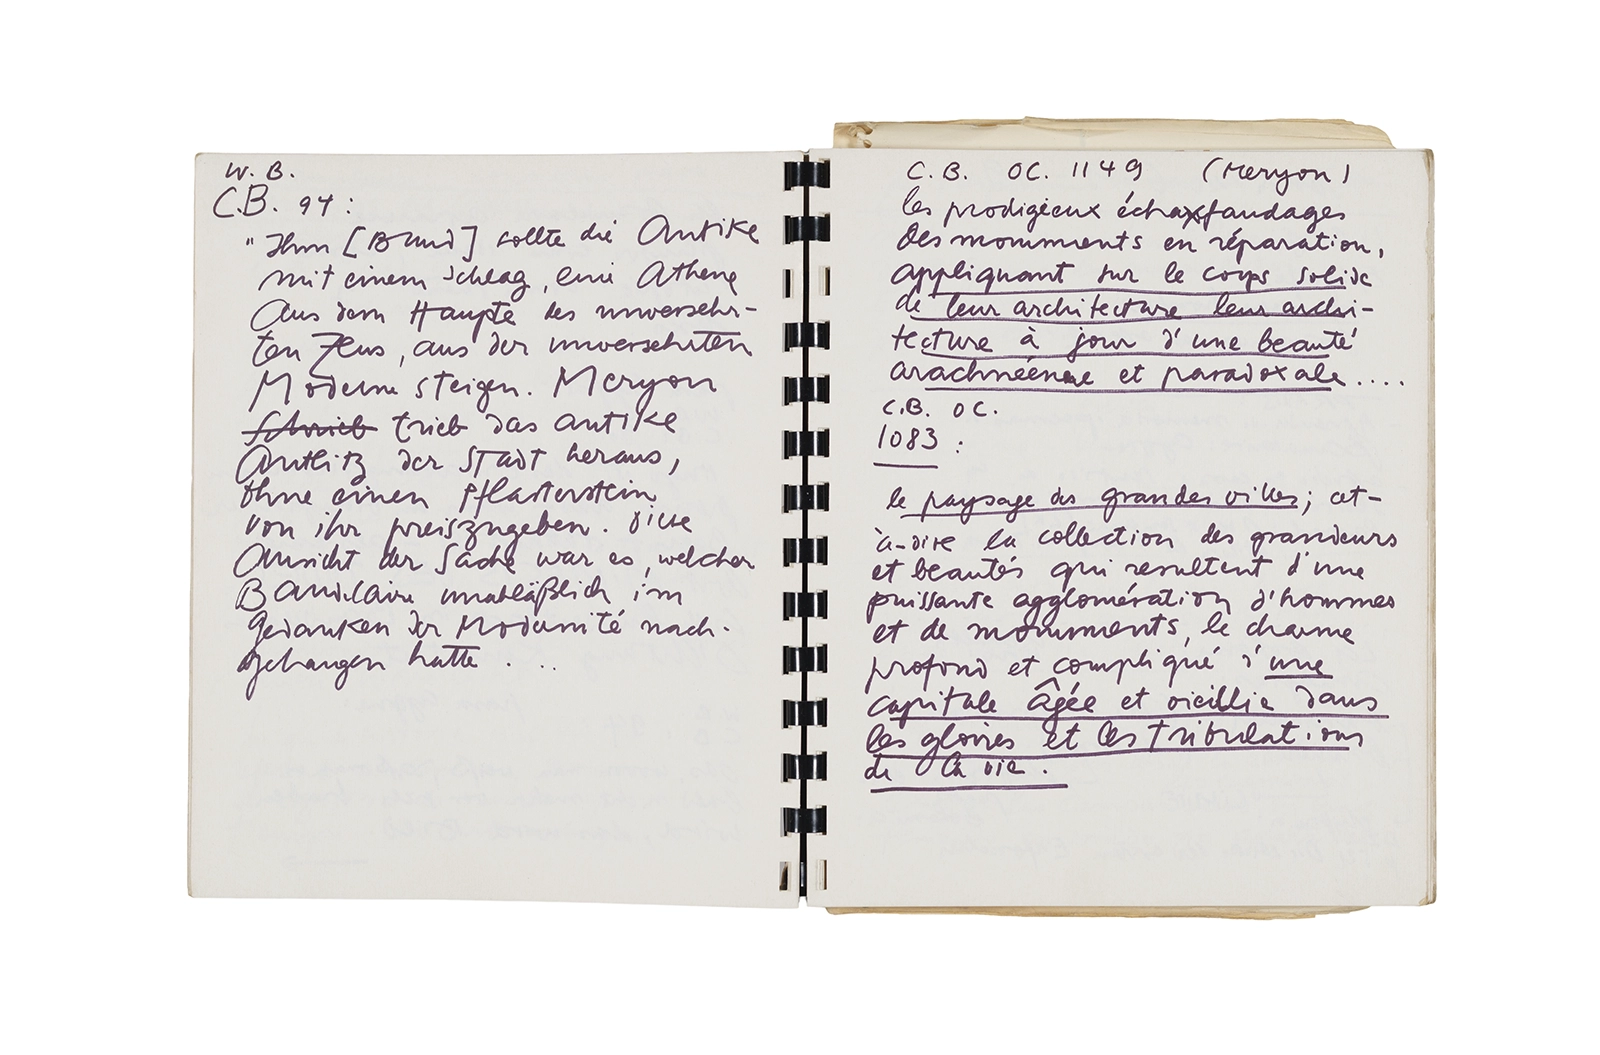 W. B.
C.B. 94:
"Ihm [Baud] sollte die Antike
mit einem Schlag, eine Athene
aus dem Haupte des unversehr-
ten Zeus, aus der unversehrten
Moderne steigen. Meryon
schrieb trieb das antike
Antlitz der Stadt heraus,
ohne einen Pflasterstein
von ihr preiszugeben. Diese
Ansicht der Sache war es, welcher
Baudelaire unabläßlich im
Gedanken der Modernité nach-
gehangen hatte . ..
C.B. OC. 1149 (Meryon)
les prodigieux échaxfaudages
des monuments en réparation,
appliquant sur le corps solide
de leur architecture leur archi-
tecture à jour d'une beauté
arachnéenne et paradoxale ....
C.B. OC.
1083 :
le paysage des grandes villes; cet-
à-dire la collection des grandeurs
et beautés qui resultent d'une
puissante agglomération d'hommes
et de monuments, le charme
profond et compliqué d'une
capitale âgée et vieillie dans
les gloires et les tribulations
de la vie.